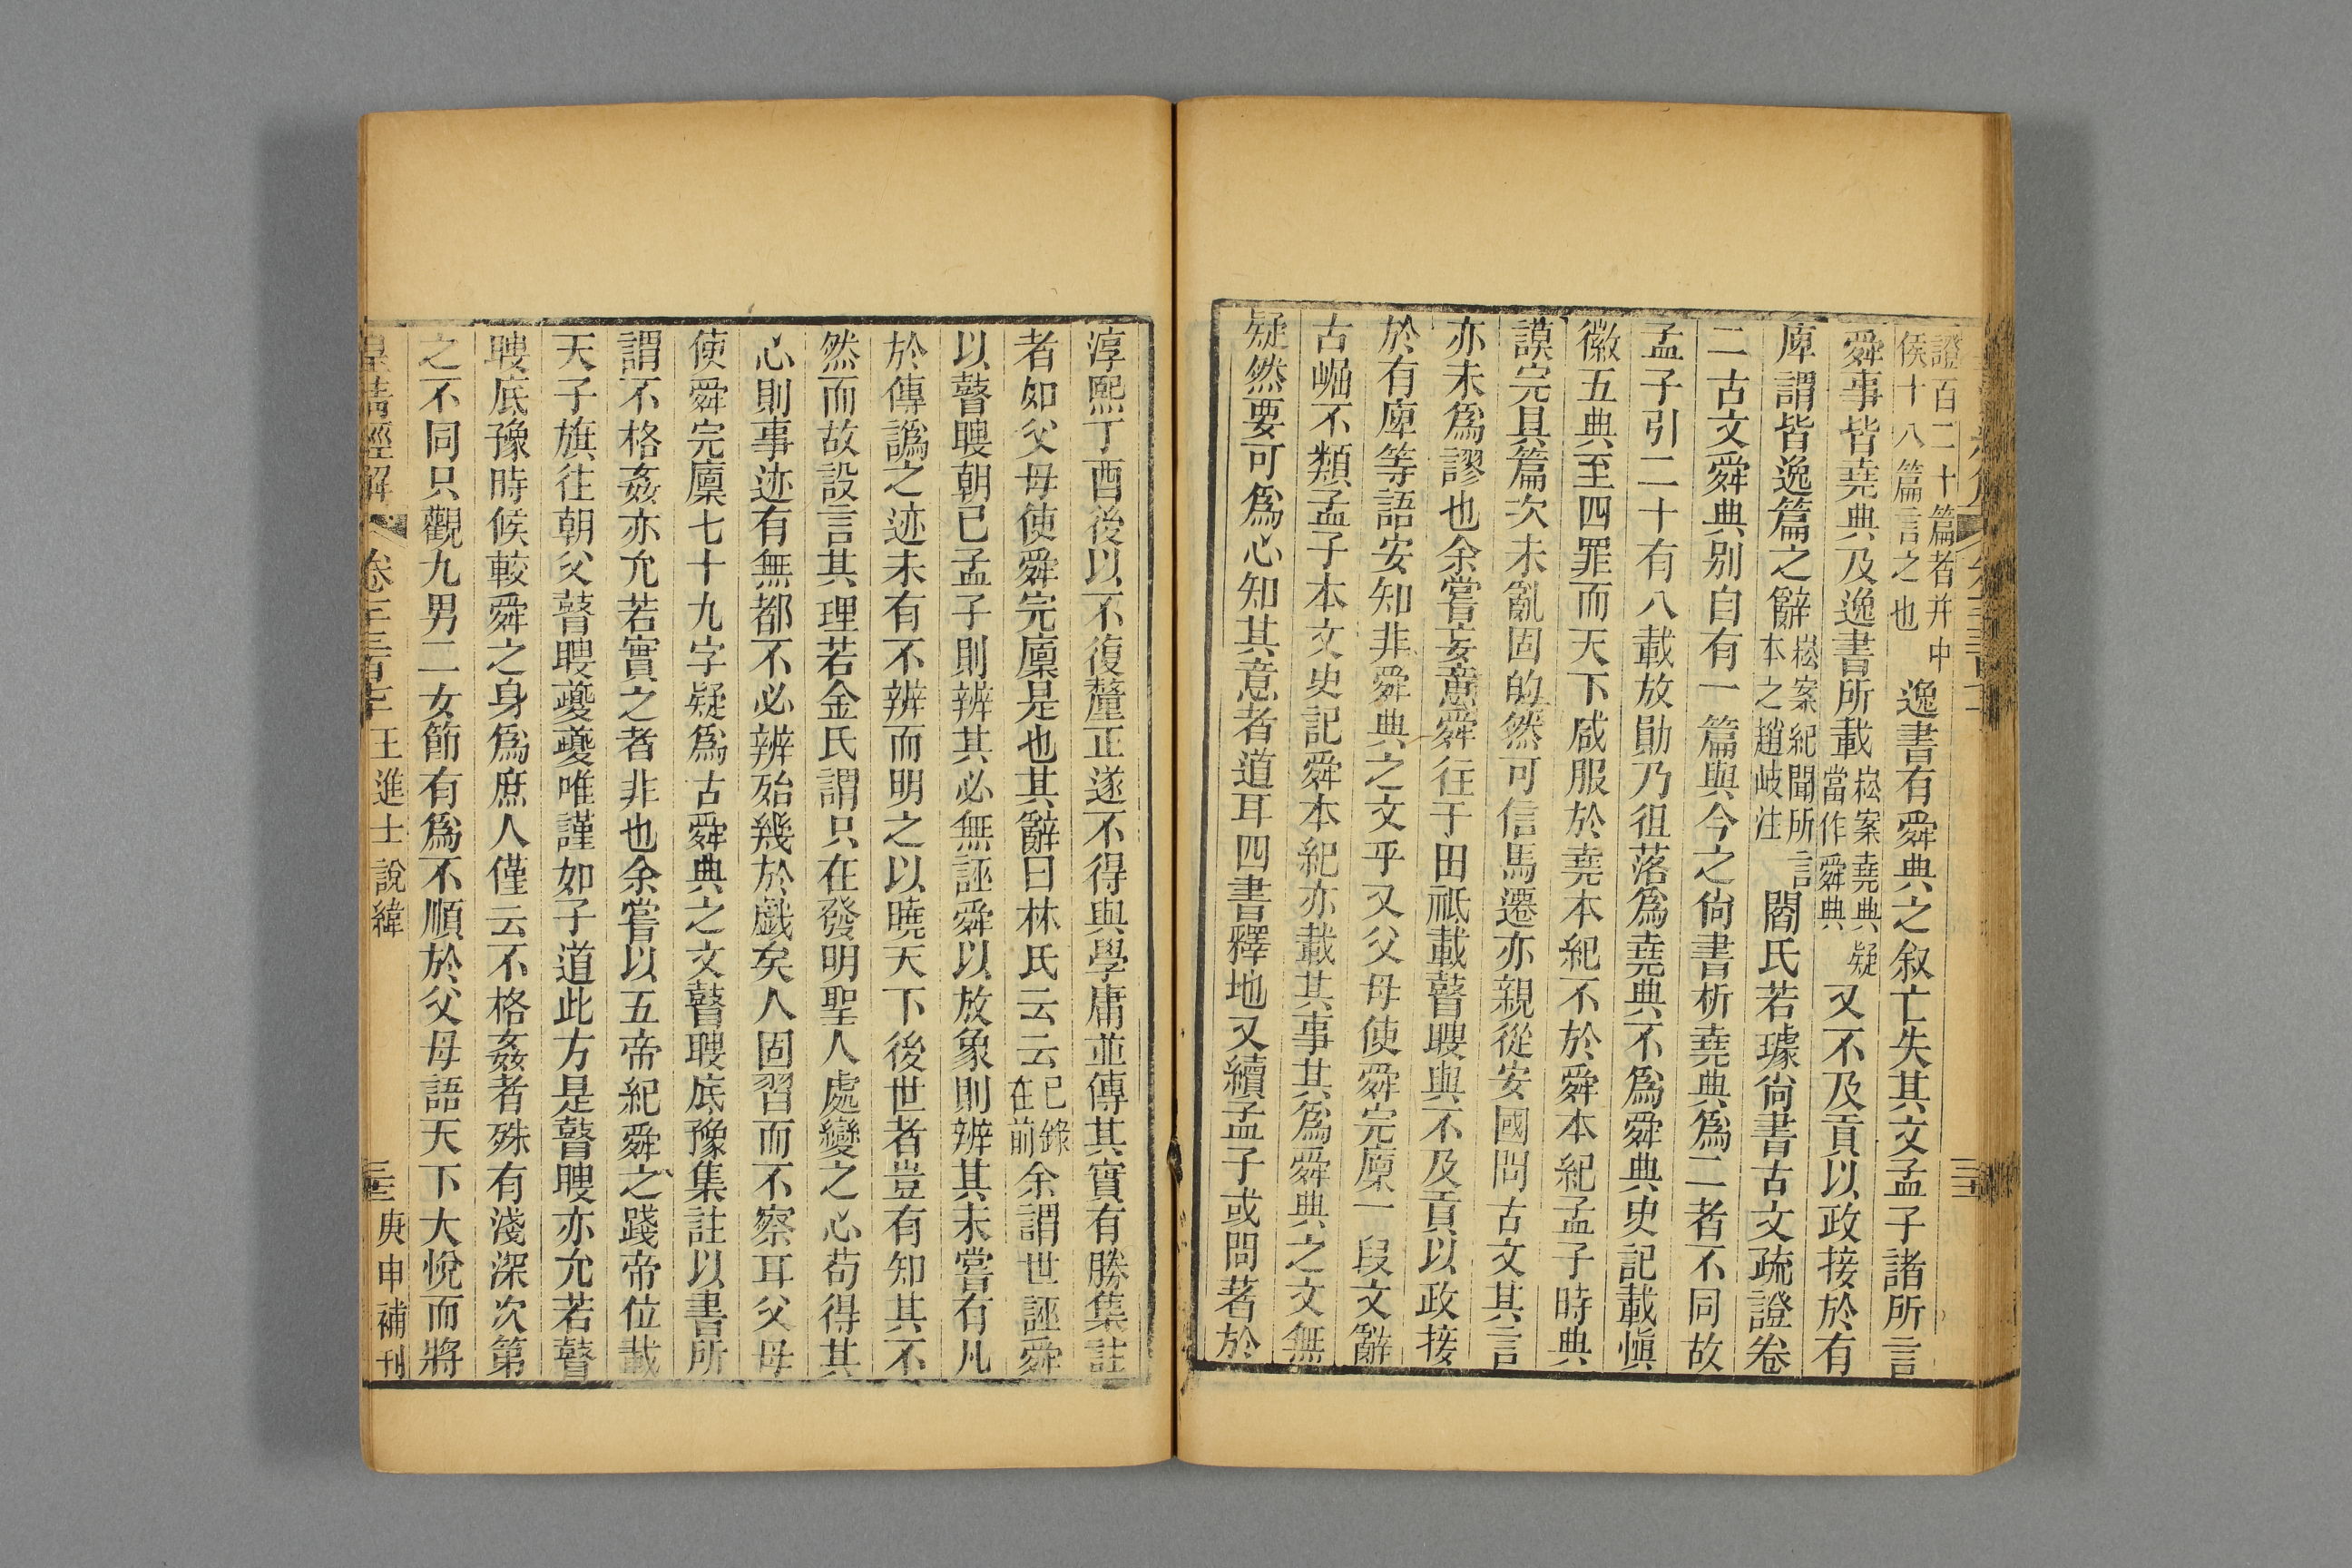 證百二十篇者并中
侯十八篇言之也
逸書有舜典之叙亡失其文孟子諸所言
舜事皆堯典及逸書所載
崧案堯典疑
當作舜典
又不及貢以政接於有
庳謂皆逸篇之辭
崧案紀聞所言
本之趙岐注
閻氏若璩尙書古文疏證卷
二古文舜典别自有一篇與今之尙書析堯典爲二者不同故
孟子引二十有八載放勛乃徂落爲堯典不爲舜典史記載愼
徽五典至四罪而天下咸服於堯本紀不於舜本紀孟子時典
謨完具篇次未亂固的然可信馬遷亦親從安國問古文其言
亦未爲謬也余嘗妄意舜往于田祇載瞽瞍與不及貢以政接
於有庳等語安知非舜典之文乎又父母使舜完廩一段文辭
古崛不類孟子本文史記舜本紀亦載其事其爲舜典之文無
疑然要可爲心知其意者道耳四書釋地又續孟子或問著於
淳熙丁酉後以不復釐正遂不得與學庸並傳其實有勝集註
者如父母使舜完廩是也其辭曰林氏云云
已錄
在前
余謂世誣舜
以瞽瞍朝已孟子則辨其必無誣舜以放象則辨其未嘗有凡
於傳譌之迹未有不辨而明之以曉天下後世者豈有知其不
然而故設言其理若金氏謂只在發明聖人處變之心苟得其
心則事迹有無都不必辨殆幾於戲矣人固習而不察耳父母
使舜完廩七十九字疑爲古舜典之文瞽瞍底豫集註以書所
謂不格姦亦允若實之者非也余嘗以五帝紀舜之踐帝位載
天子旗往朝父瞽瞍夔夔唯謹如子道此方是瞽瞍亦允若瞽
瞍底豫時候較舜之身爲庶人僅云不格姦者殊有淺深次第
之不同只觀九男二女節有爲不順於父母語天下大悅而將
皇淸經解
卷
王進士說緯
庚申補刊